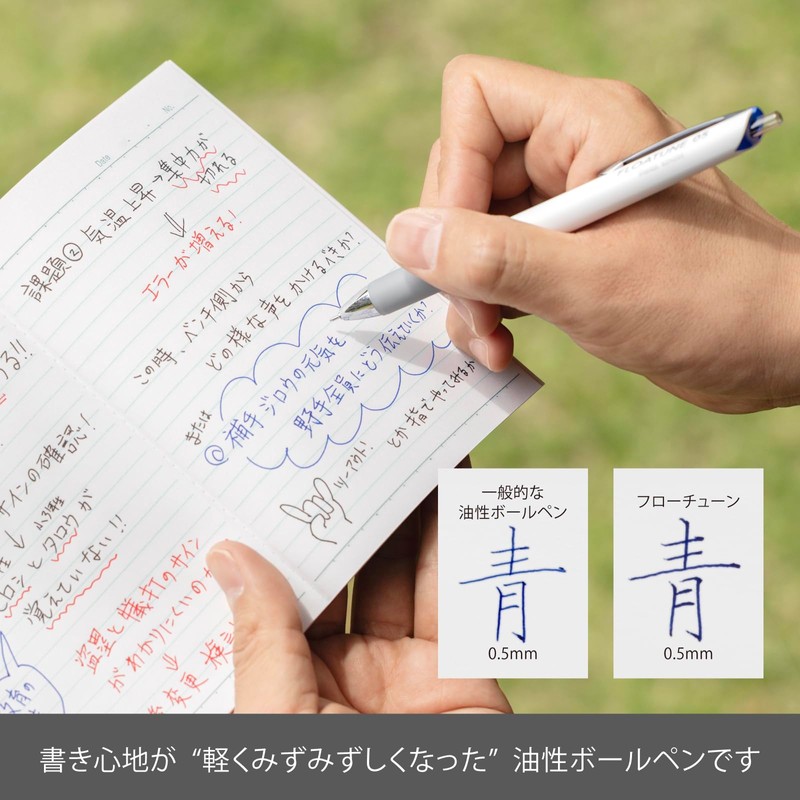 Date
No.
課題② 気温上昇→集中力が
切れる
⇓
エラーが増える!
この時、ベンチ側から
どの様な声をかけるべきか?
または
@補手ジロウの元気を
野手全員にどう伝えていくか?
ツーアウト!
とか指でやってみるか
つる!!
サインの確認!
ヒロシとタロウが
覚えていない!!
盗塁と犠打のサイン
がわかりにくいの
⇓
変更 検討
FLOATUNE 05
一般的な
油性ボールペン
青
0.5mm
フローチューン
青
0.5mm
書き心地が “軽くみずみずしくなった” 油性ボールペンです